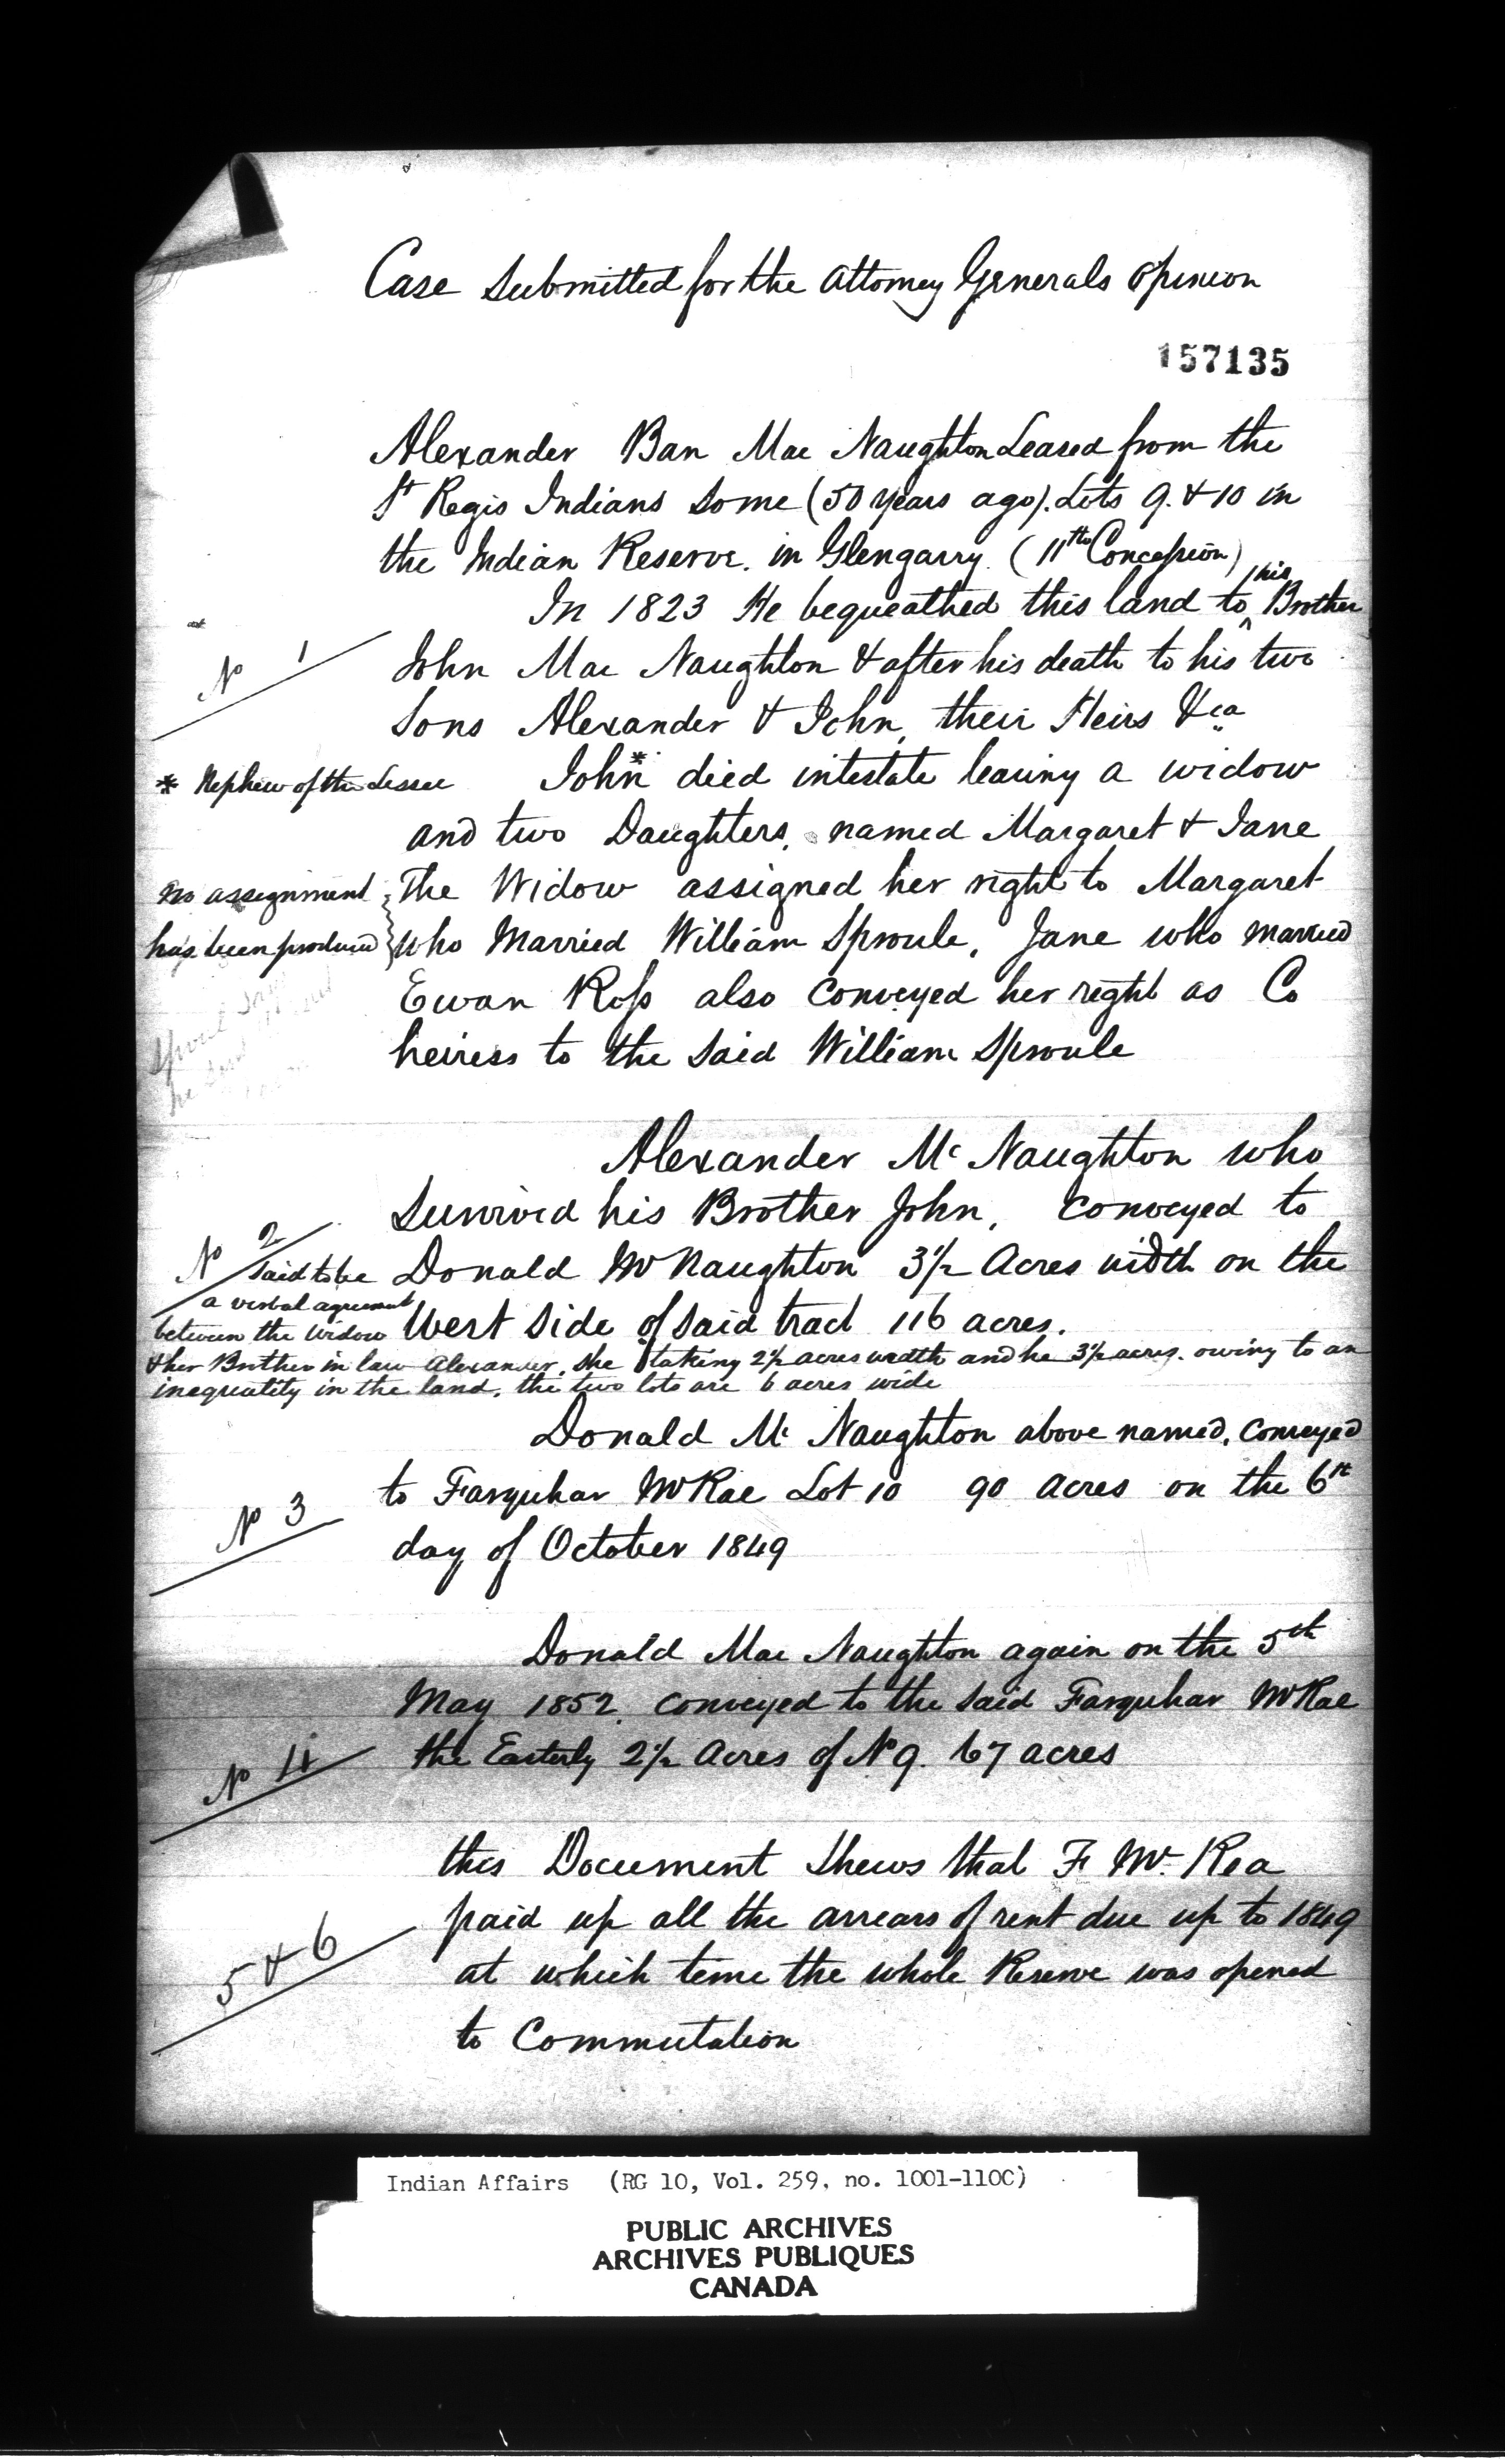 Case Submitted for the Attorney Generals Opinion
157135
Alexander Ban Mac Naughton Leased from the
St Regis Indians Some (50 years ago). Lots 9. & 10 in
the Indian Reserve. in Glengarry. (11th Concession)
In 1823 He bequeathed this land to his Brother
No 1
John Mac Naughton & after his death to his two
Sons Alexander & John, their Heirs &ca
* Nephew of the Lessee
John* died intestate leaving a widow
and two Daughters, named Margaret & Jane
no assignment
has been produced
The Widow assigned her right to Margaret
who Married William Sproule, Jane who married
Ewan Ross also Conveyed her right as Co
heiress to the Said William Sproule
Alexander Mc Naughton who
Survived his Brother John, Conveyed to
No 2
Donald McNaughton 3 1/2 Acres width on the
West Side of Said tract 116 acres.
Said to be
a verbal agreement
between the Widow
& her Brother in law Alexander, She taking 2 1/2 acres width and he 3 1/2 acres. owing to an
inequality in the land, the two lots are 6 acres wide
Donald Mc Naughton above named, Conveyed
No 3
to Farquhar McRae Lot 10 90 Acres on the 6th
day of October 1849
Donald Mac Naughton again on the 5th
May 1852. Conveyed to the Said Farquhar McRae
No 4
the Easterly 2 1/2 Acres of No 9. 67 acres
this Document Shews that F Mc. Rea
5 & 6
paid up all the arrears of rent due up to 1849
at which time the whole Reserve was opened
to Commutation
Indian Affairs (RG 10, Vol. 259, no. 1001-110C)
PUBLIC ARCHIVES
ARCHIVES PUBLIQUES
CANADA